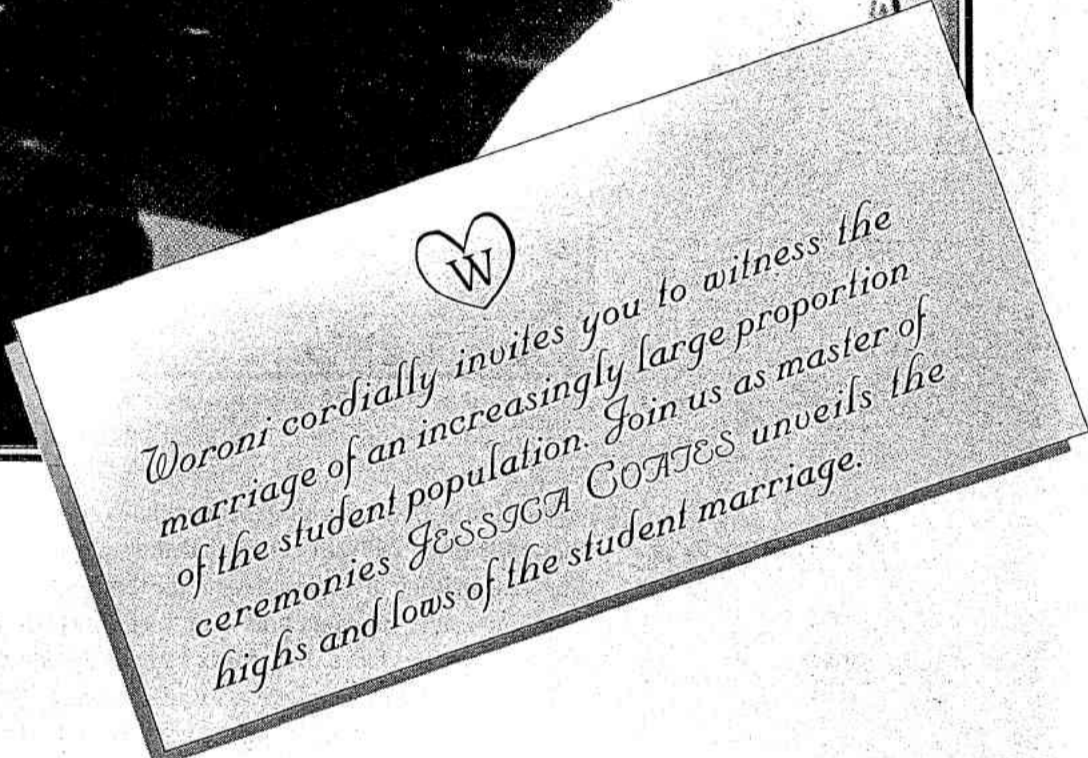 W
Woroni cordially invites you to witness the
marriage of an increasingly large proportion
of the student population. Join us as master of
ceremonies JESSICA COATES unveils the
highs and lows of the student marriage.